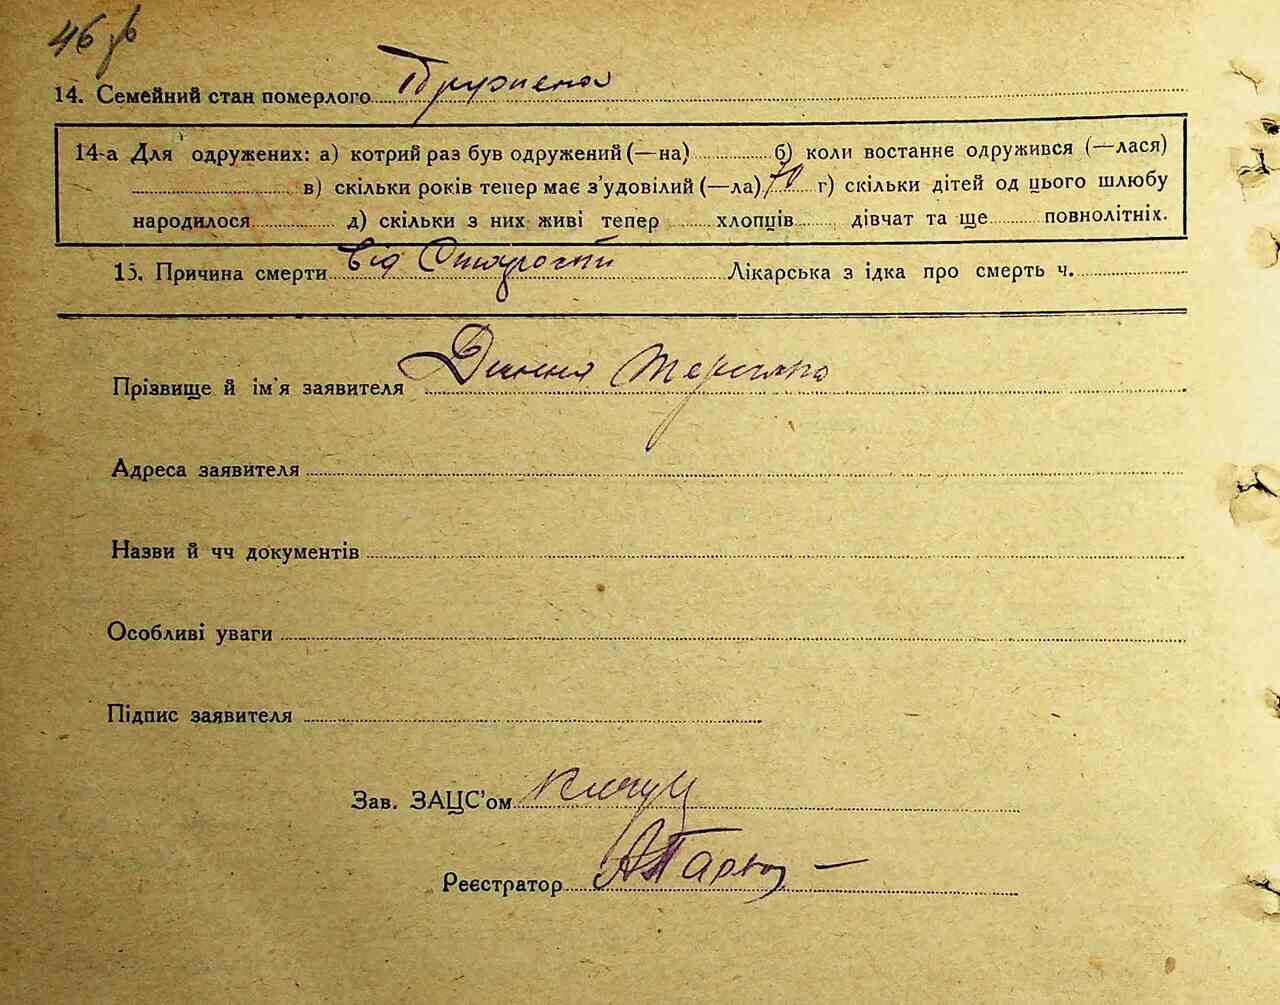 46 зв
14. Семейний стан померлого Дружена
14-а Для одружених: а) котрий раз був одружений (—на) б) коли востаннє одружився (—лася)
в) скільки років тепер має з'удовілий (—ла) 70 г) скільки дітей од цього шлюбу
народилося д) скільки з них живі тепер хлопців дівчат та ще повнолітніх.
15. Причина смерти Від Старости Лікарська з ідка про смерть ч.
Прізвище й ім'я заявителя
Адреса заявителя
Назви й чч документів
Особливі уваги
Підпис заявителя
Зав. ЗАЦС'ом
Реєстратор